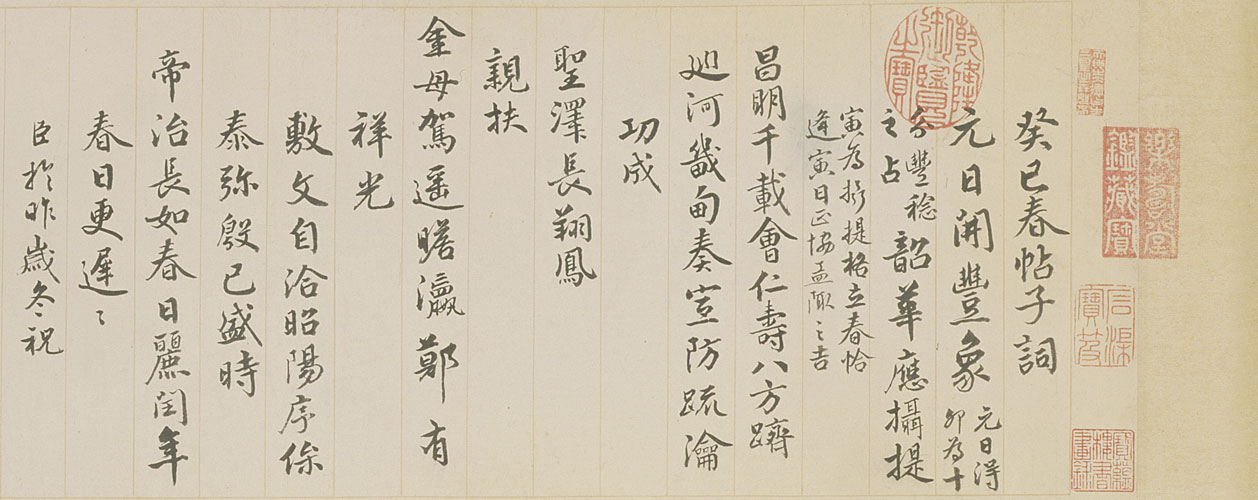 癸巳春帖子詞
元日開豐象 元日得卯為十
分豐稔之占 韶華應攝提
寅為攝提格立春恰
逢寅日正協孟陬之吉
昌明千載會仁壽八方躋
巡河畿甸奏宣防疏瀹
功成
聖澤長翔鳳
親扶
金母駕遥瞻瀛鄭有
祥光
敷文自洽昭陽序
泰弥殷已盛時
帝治長如春日麗閏年
春日更遲遲
臣於昨歲冬祝
乾隆御覽之寶
樂壽堂鑑藏寶
石渠寶笈
寶蘊樓書畫錄